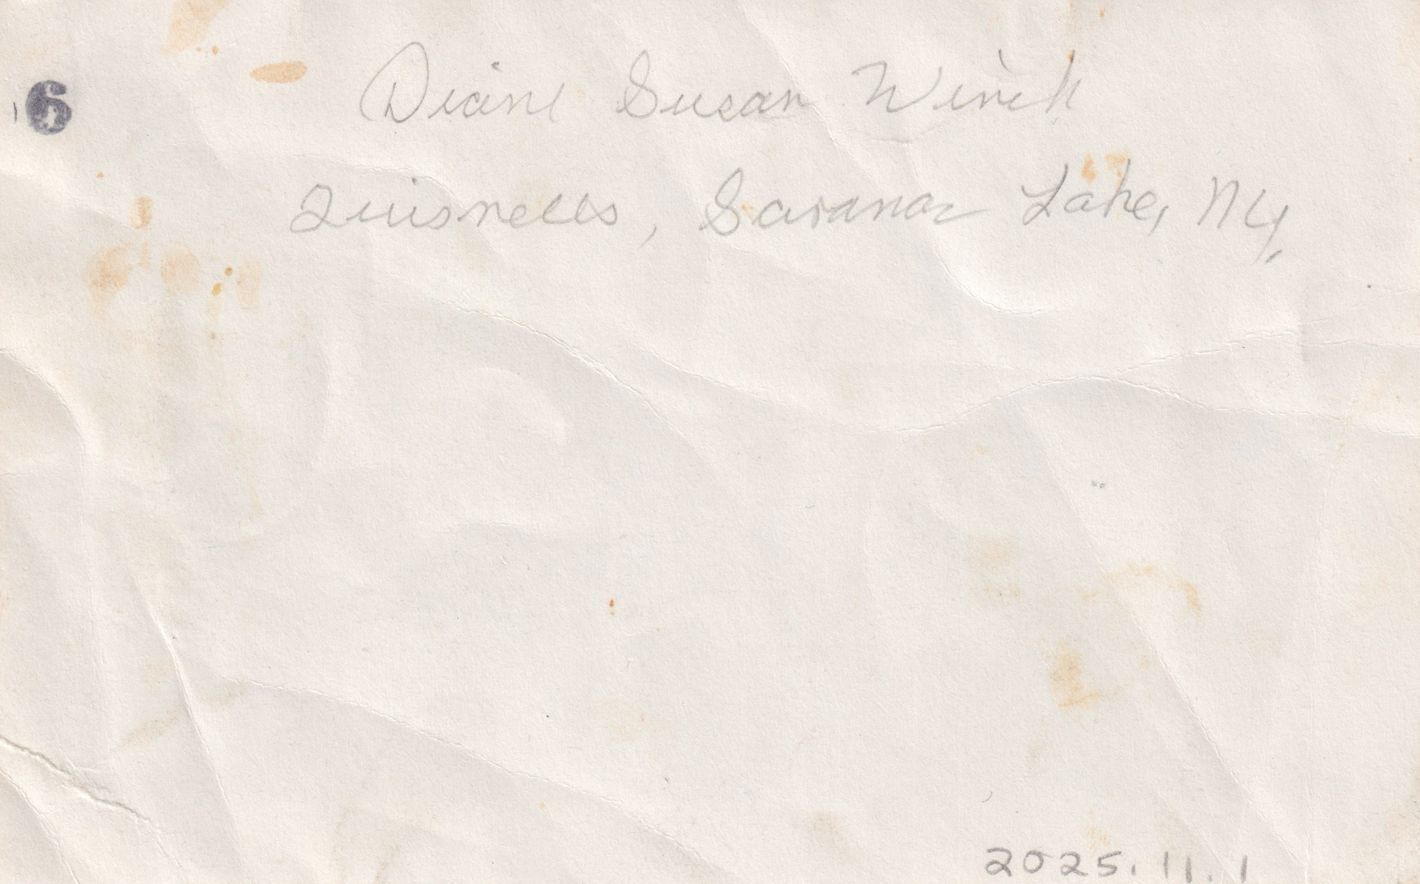 6
Diane Susan Winch
Quisnells, Saranac Lake, Ny.
2025.11.1